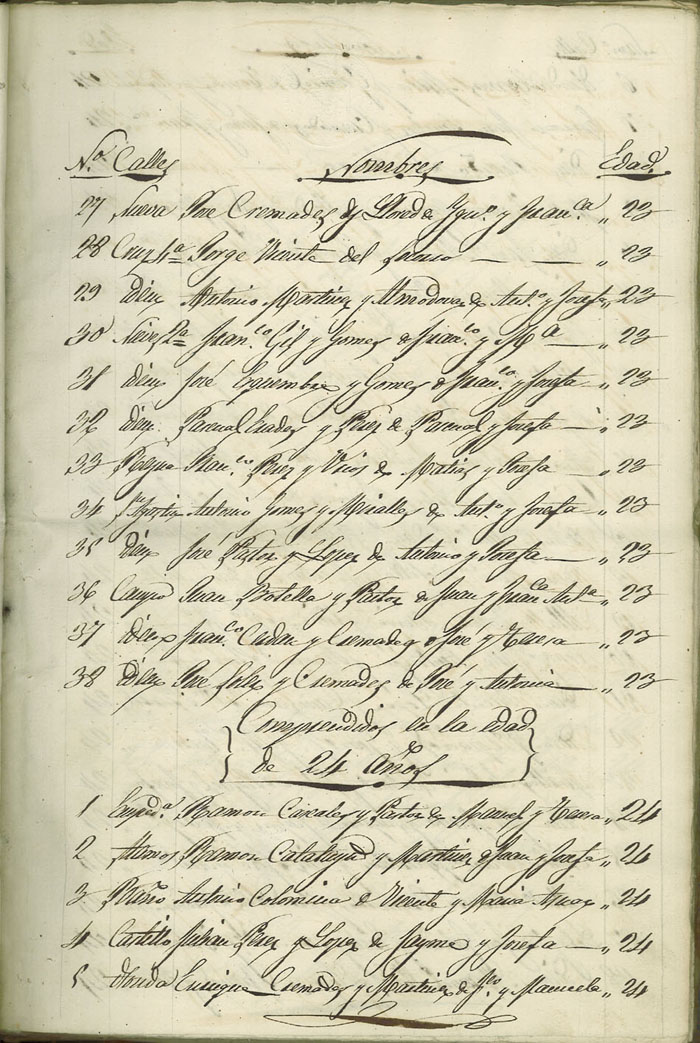 N.º Calles Nombres Edad
27 Nueva José Cremades y Lloret de Ign.º y Fran.ca „ 23
28 Cruz 4.ª Jorge Vicente del „ 23
29 idem Antonio Martinez y Almodovar de Ant.º y Josefa „ 23
30 Nieves Fran.co Gil y Gomes de Fran.co y M.ª „ 23
31 idem José y Gomes de Fran.co y Josefa „ 23
32 idem Pascual y Perez de Pascual y Josefa „ 23
33 Fran.co Perez y de Matias y Josefa „ 23
34 Antonio Gomes y Miralles de Ant.º y Josefa „ 23
35 idem José Pastor y Lopez de Antonio y Josefa „ 23
36 Campo Juan Botella y Pastor de Juan y Fran.ca Ant.ª „ 23
37 idem Fran.co y Cremades de José y Teresa „ 23
38 idem José Soler y Cremades de José y Antonia „ 23
Comprendidos en la edad
de 24 años
1 Emped.º Ramon y Pastor de Manuel y Teresa „ 24
2 Ramon Calatayud y Martinez de Juan y Josefa „ 24
3 Antonio Colomina de Vicente y Maria „ 24
4 Castillo Julian Perez y Lopez de Jayme y Josefa „ 24
5 Enrique Cremades y Martinez de y Manuela „ 24